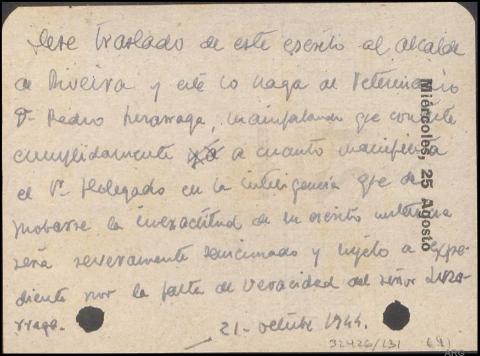 Dese traslado de este escrito al alcalde
de Riveira y este lo haga al Veterinario
Sr. Pedro Lizarraga, manifestando que conteste
cumplidamente a cuanto manifiesta
el Sr. Delegado en la inteligencia que de
probarse la inexactitud de su escrito
será severamente sancionado y sujeto a Expe-
diente por la falta de veracidad del señor Liza-
rraga.
21- octubre 1944.
32426/131 641
Miércoles, 25 Agosto